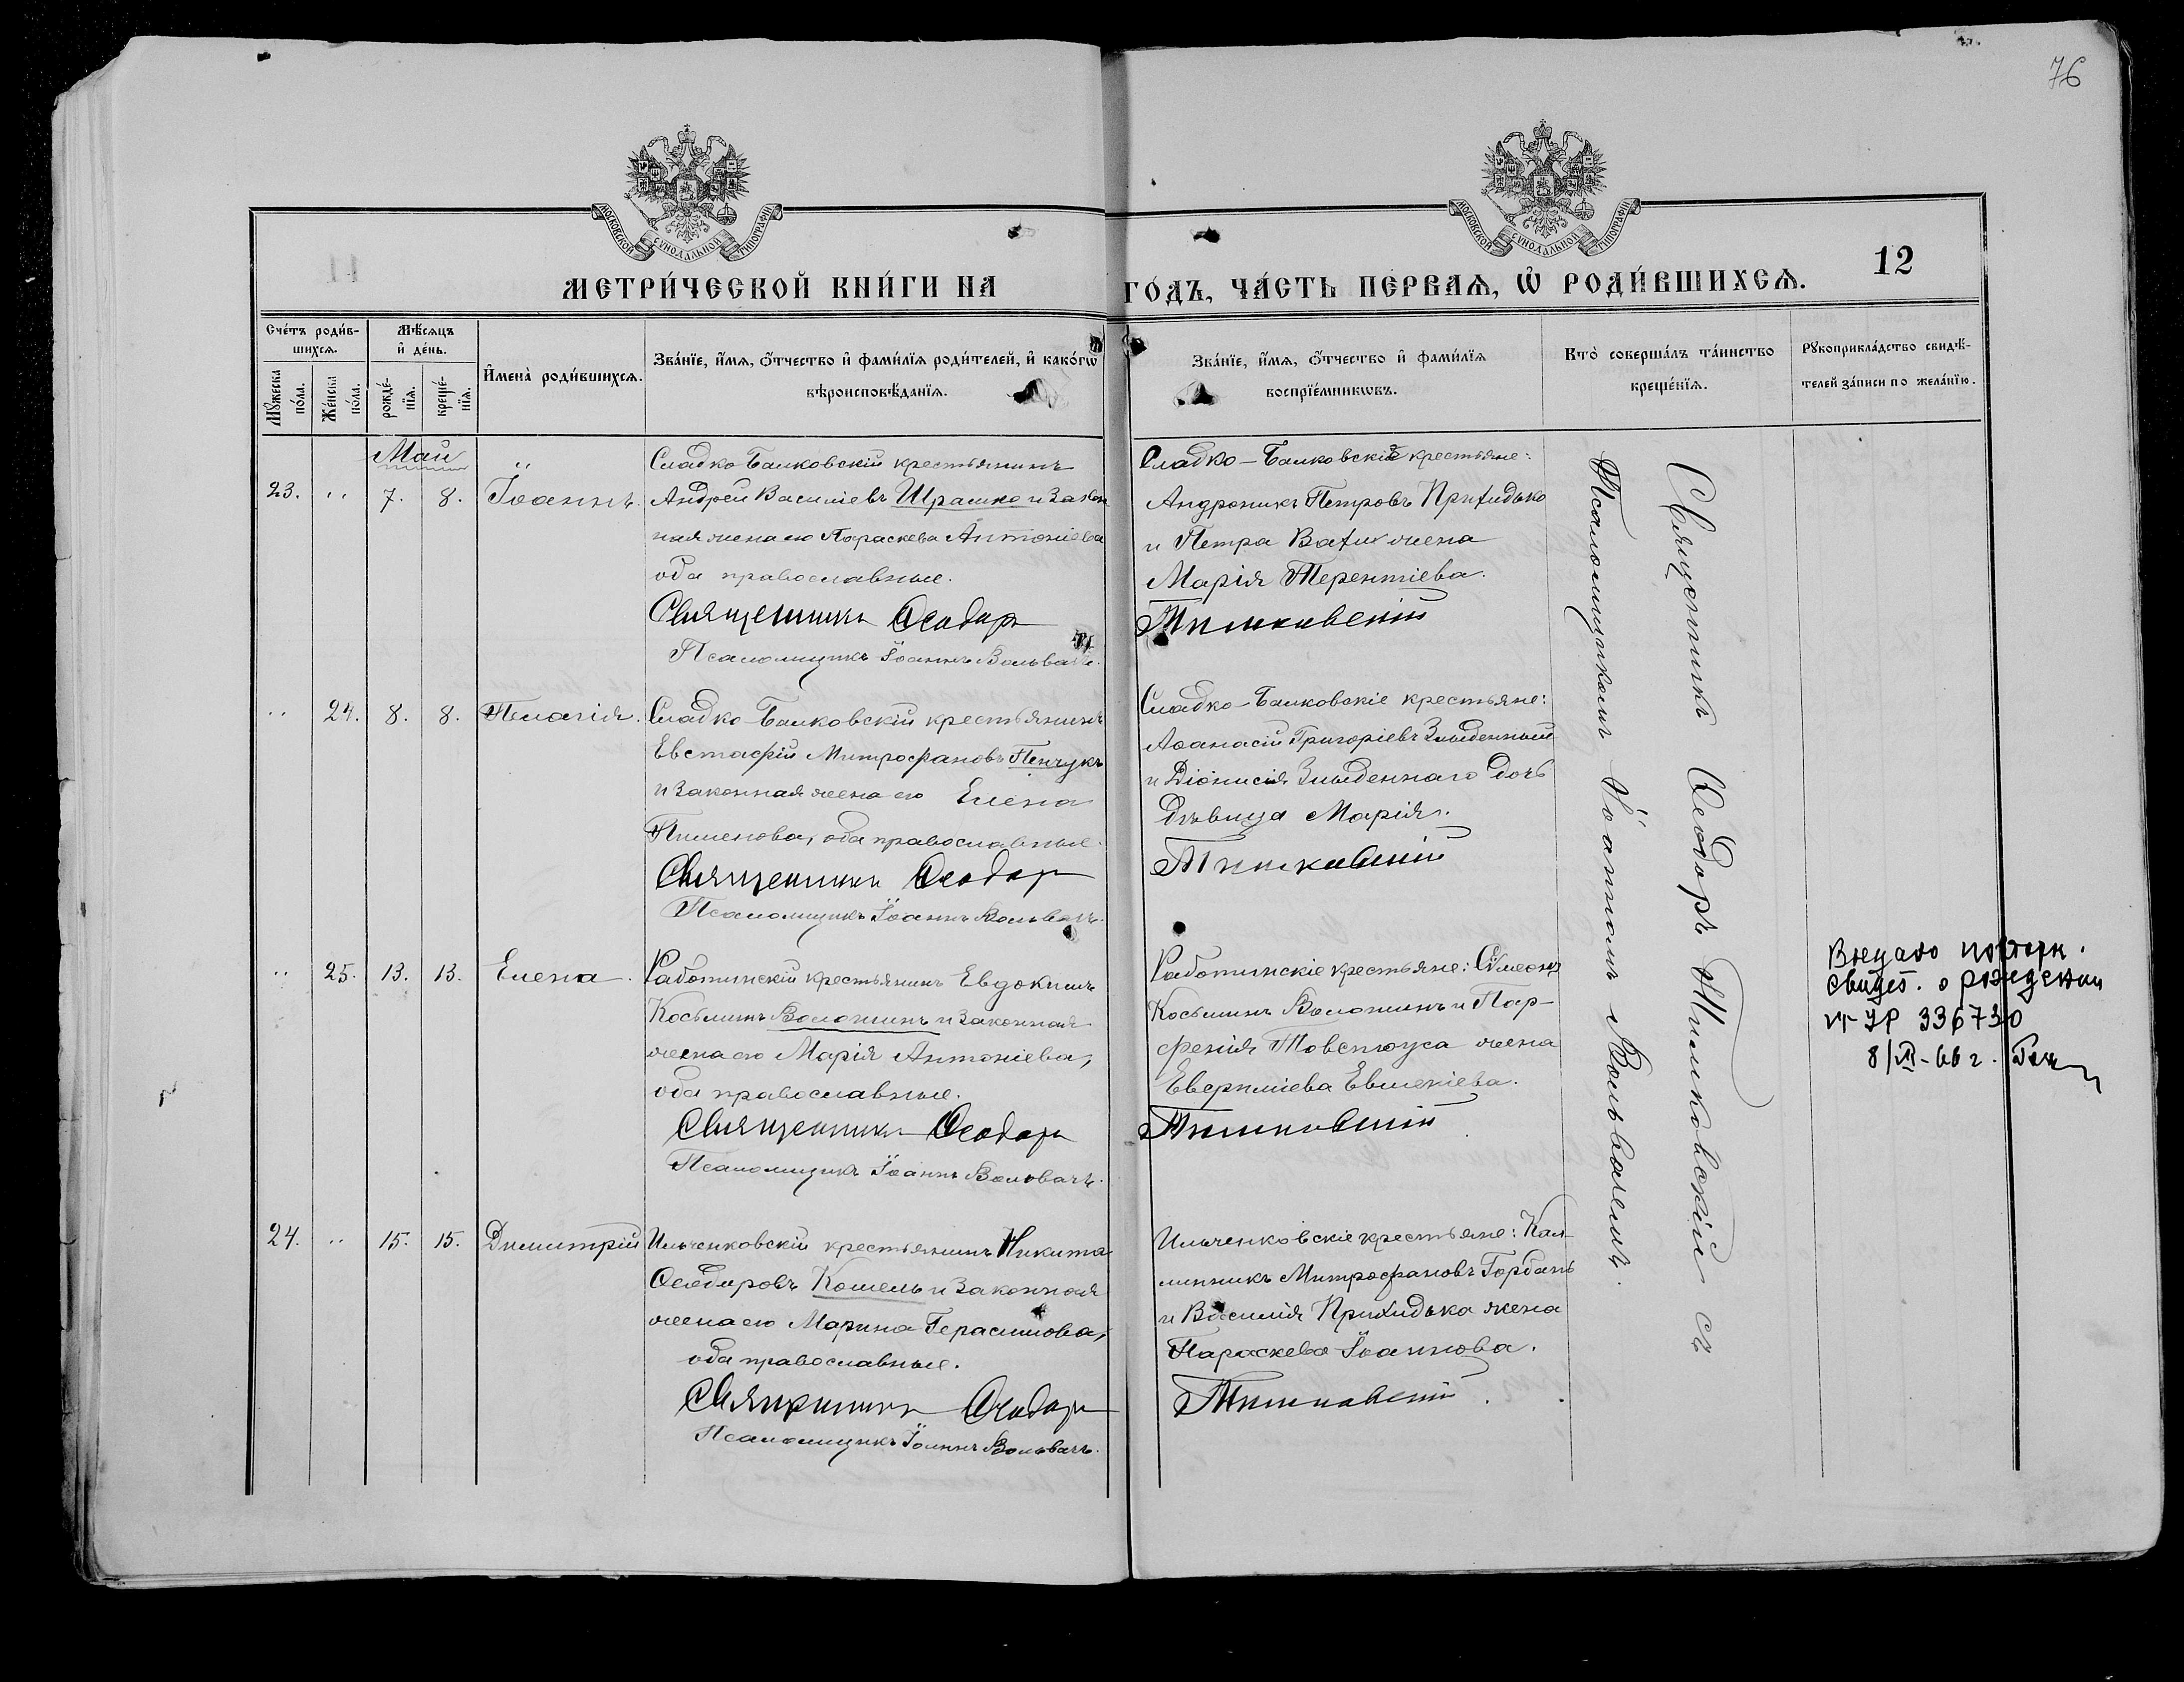 76
МОСКОВСКОЙ СУНОДАЛЬНОЙ ТИПОГРАФІИ
МОСКОВСКОЙ СУНОДАЛЬНОЙ ТИПОГРАФІИ
12
МЕТРИ́ЧЕСКОЙ КНИ́ГИ НА
ГО́ДЪ, ЧА́СТЬ ПЕ́РВАѦ, Ѡ҆ РОДИ́ВШИХСѦ.
Сче́тъ роди́в-
шихсѧ.
Мꙋ́жеска по́ла.
Же́нска по́ла.
Мѣ́сѧцъ
и҆ де́нь.
рожде́-
нїѧ.
креще́-
нїѧ.
И҆мена̀ роди́вшихсѧ.
Зва́нїе, и҆́мѧ, ѻ҆́тчество и҆ фами́лїѧ роди́телей, и҆ како́гѡ
вѣроисповѣ́данїѧ.
Зва́нїе, и҆́мѧ, ѻ҆́тчество и҆ фами́лїѧ
воспрїе́мникѡвъ.
Кто̀ соверша́лъ та́инство
креще́нїѧ.
Рꙋкоприкла́дство свидѣ́-
телей за́писи по жела́нїю.
Май
23. " 7. 8. Іоаннъ.
Сладко-Балковскій крестьянинъ
Андрей Василіевъ Шрамко и закон
ная жена его Параскева Антоніева
оба православные.
Священникъ Ѳеодоръ
Псаломщикъ Іоаннъ Вольвачъ.
Сладко-Балковскіе крестьяне:
Андроникъ Петровъ Приходько
и Петра жена
Марія Терентіева.
Тимковскій
" 24. 8. 8. Пелагія.
Сладко-Балковскій крестьянинъ
Евстафій Митрофановъ Пенчукъ
и законная жена его Елена
Пименова, оба православные.
Священникъ Ѳеодоръ
Псаломщикъ Іоаннъ Вольвачъ.
Сладко-Балковскіе крестьяне:
Аѳанасій Григоріевъ Злыденный
и Діонисія Злыденнаго дочь
дѣвица Марія.
Тимковскій
" 25. 13. 13. Елена.
Работинскій крестьянинъ Евдокимъ
Косьминъ Волошинъ и законная
жена его Марія Антоніева,
оба православные.
Священникъ Ѳеодоръ
Псаломщикъ Іоаннъ Вольвачъ.
Работинскіе крестьяне: Симеонъ
Косьминъ Волошинъ и Пар-
фенія Товстоуса жена
Евфиміева Евменіева.
Тимковскій
24. " 15. 15. Димитрій
Ильченковскій крестьянинъ Никита
Ѳеодоровъ Кошель и законная
жена его Марина Герасимова,
оба православные.
Священникъ Ѳеодоръ
Псаломщикъ Іоаннъ Вольвачъ.
Ильченковскіе крестьяне: Кал-
линникъ Митрофановъ Горбань
и Василія Приходька жена
Параскева Іоаннова.
Тимковскій.
Священникъ Ѳеодоръ Тимковскій съ
Псаломщикомъ Іоанномъ Вольвачемъ.
Выдано повторн.
свидет. о рождении
336730